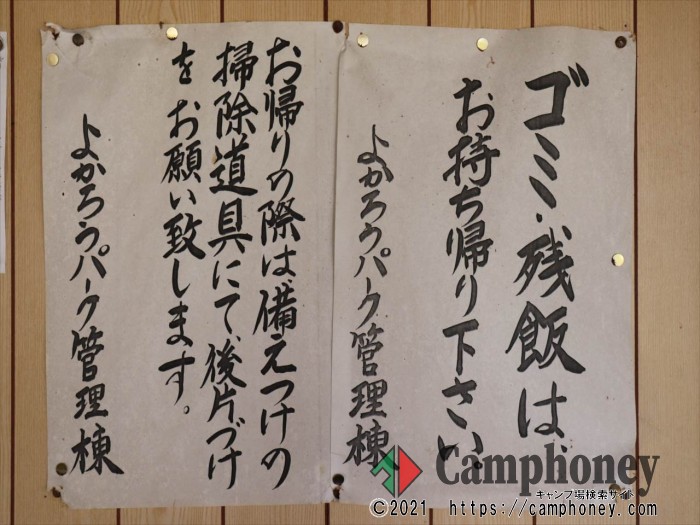 ゴミ・残飯は、
お持ち帰り下さい。
よかろうパーク管理棟
お帰りの際は、備えつけの
掃除道具にて、後片づけ
をお願い致します。
よかろうパーク管理棟
Camphoney
キャンプ場検索サイト
©2021 https://camphoney.com